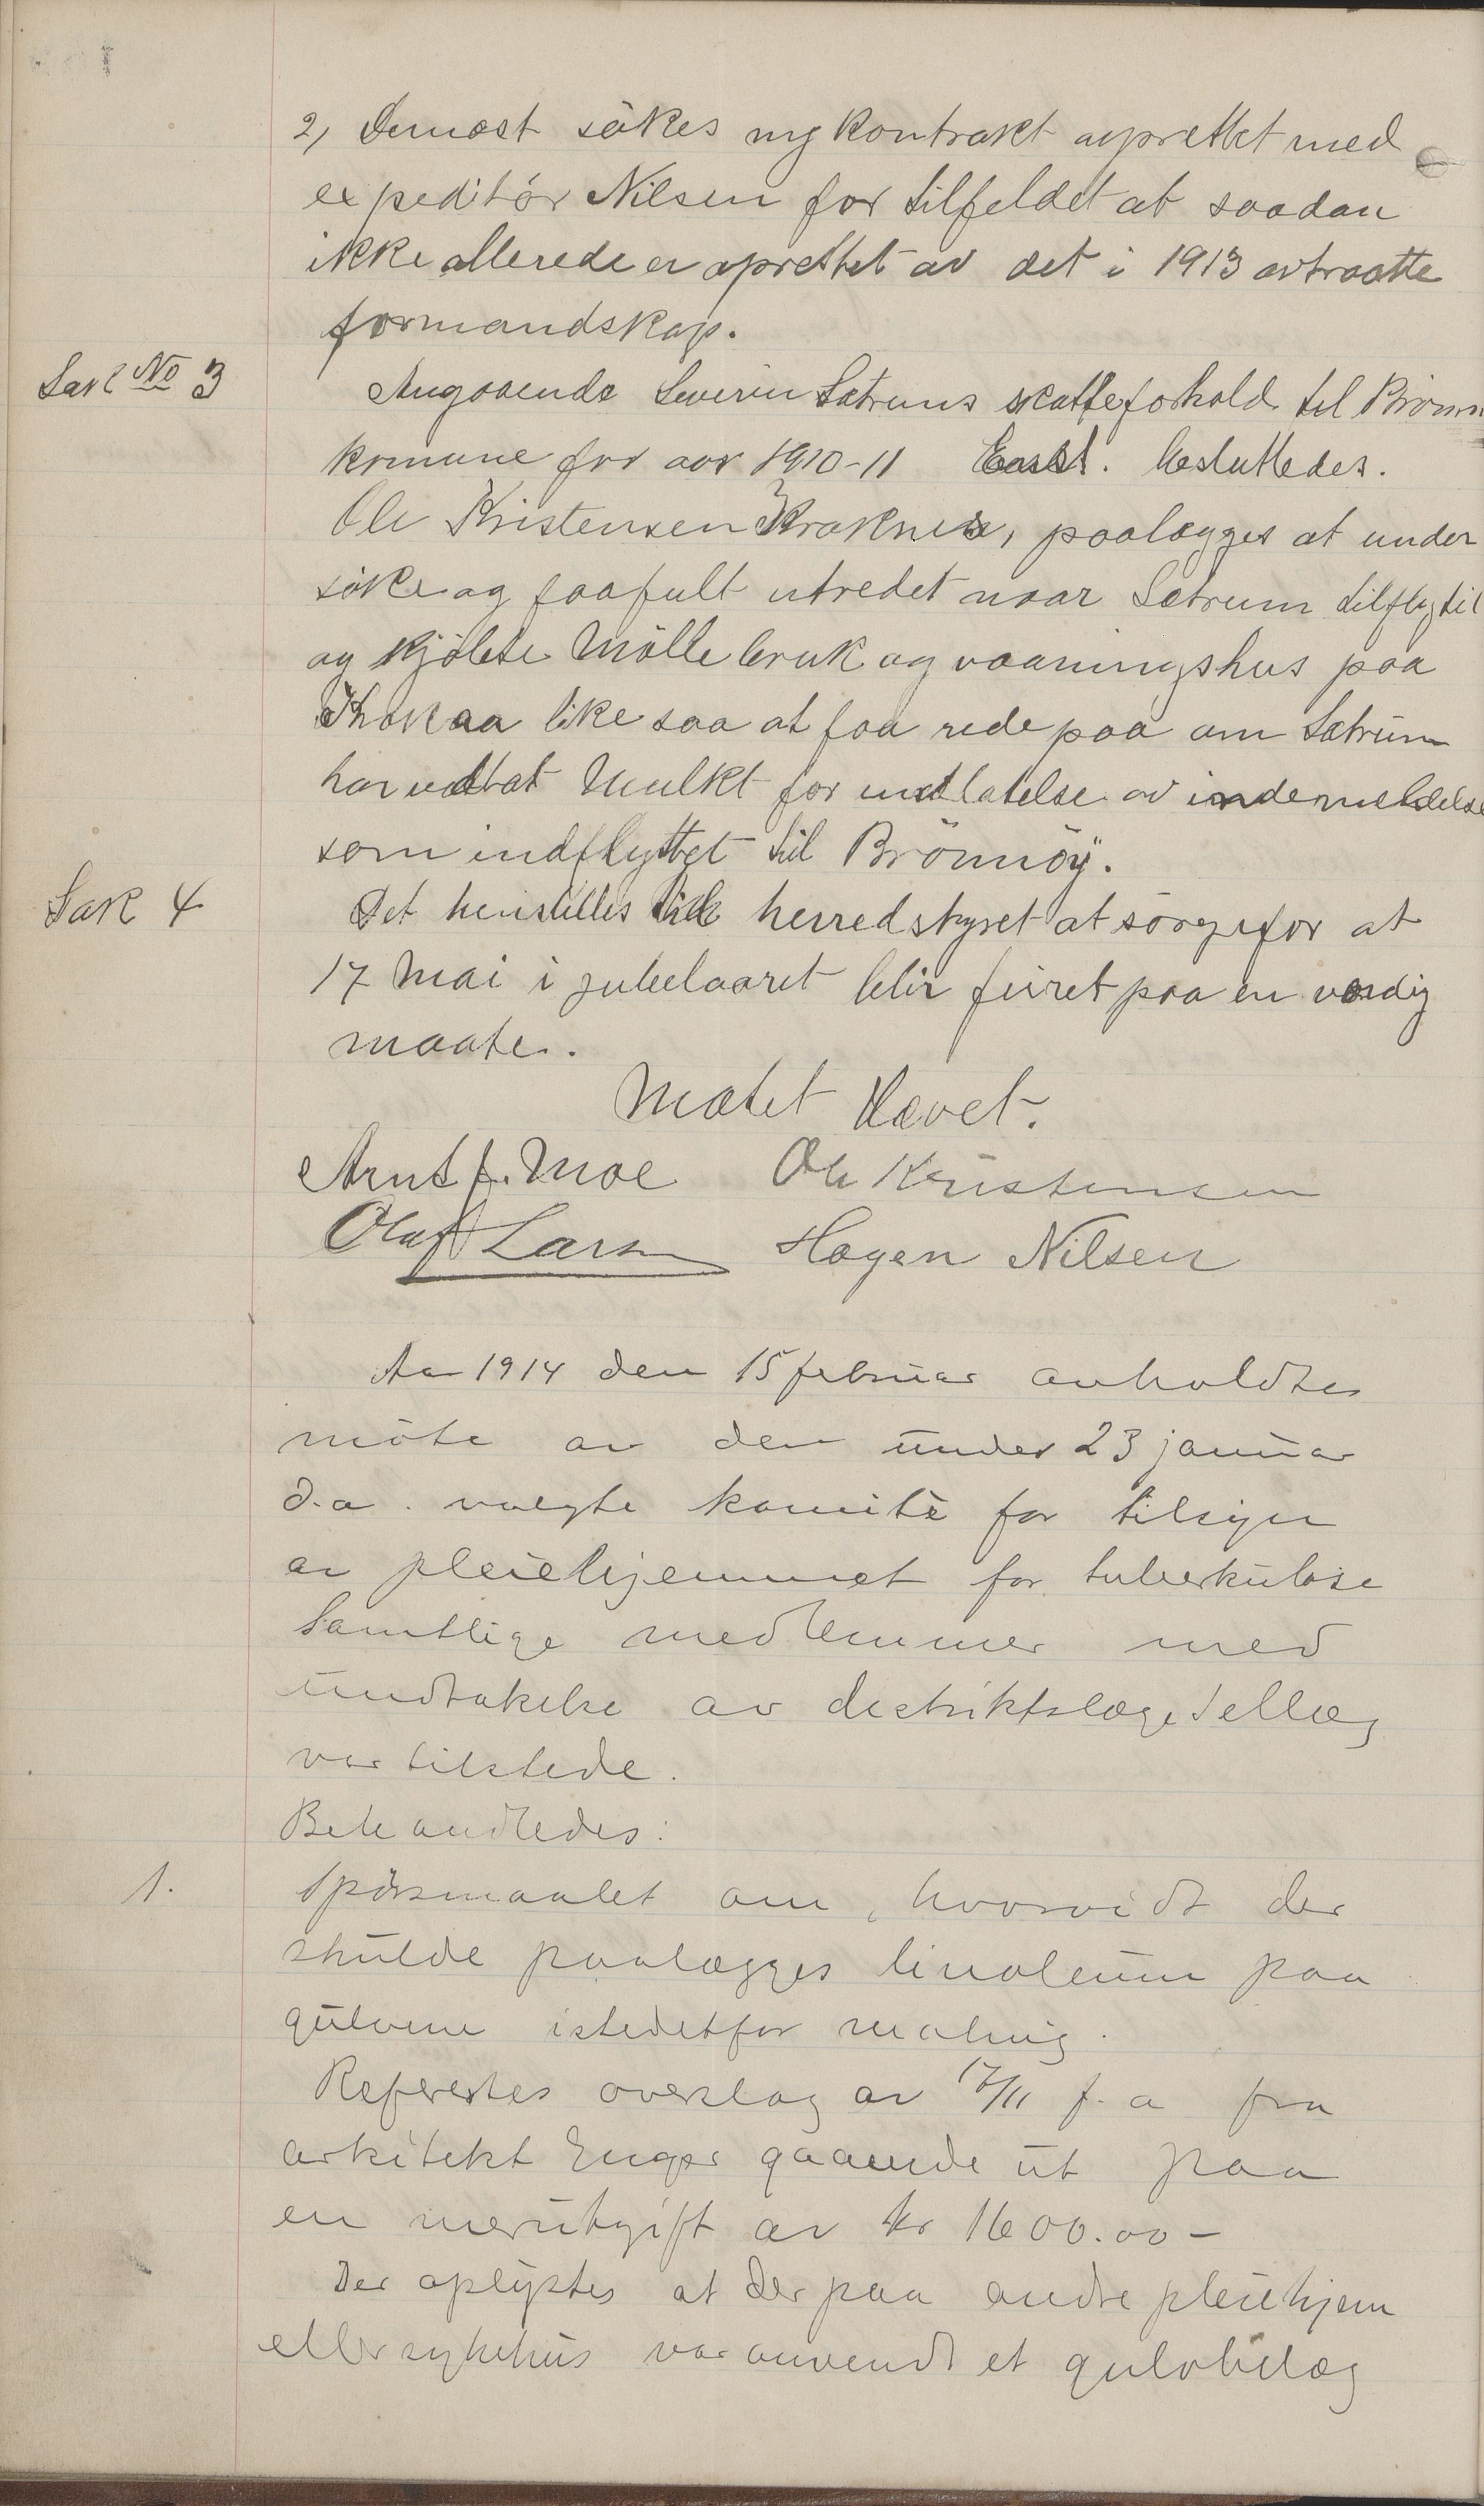 2, Dernæst søkes ny kontrakt oprettet med
expeditör Nilsen for tilfeldet at saadan
ikke allerede er oprettet av det i 1913 avtraatte
formandskap.
Sak No 3
Angaaende Severin Sætrums skatteforhold til Brönnö
komune for aar 1910-11 besluttedes.
Ole Kristensen Kraknes, paalægges at under
söke og faa fult utredet naar Sætrum tilflyttet
og kjöbte Möllebruk og vaaningshus paa
like saa at faa rede paa om Sætrum
har vedtat Mulkt for undlatelse av indemeldelse
som indflyttet til Brönnöy.
Sak 4
Det henstilles til herredstyret at sörge for at
17 Mai i jubelaaret blir feiret paa en værdig
maate.
Mötet Hævet.
Arnt J. Moe Ole Kristensen
Olaf Larsen Hagen Nilsen
Aar 1914 den 15 februar avholdtes
möte av den under 23 januar
d.a. valgte komité for tilsyn
av pleiehjemmet for tuberkulöse
Samtlige medlemmer med
undtakelse av distriktslæge Sellæg
var tilstede.
Behandledes:
1.
Spörsmaalet om, hvorvidt der
skulde paalægges linoleum paa
gulvene istedetfor maling.
Refereртes overslag av 17/11 f. a fra
arkitekt Enger gaaende ut paa
en merutgift av kr 1600.00 -
Der oplystes at der paa andre pleiehjem
eller sykehus var anvendt et gulvbelæg